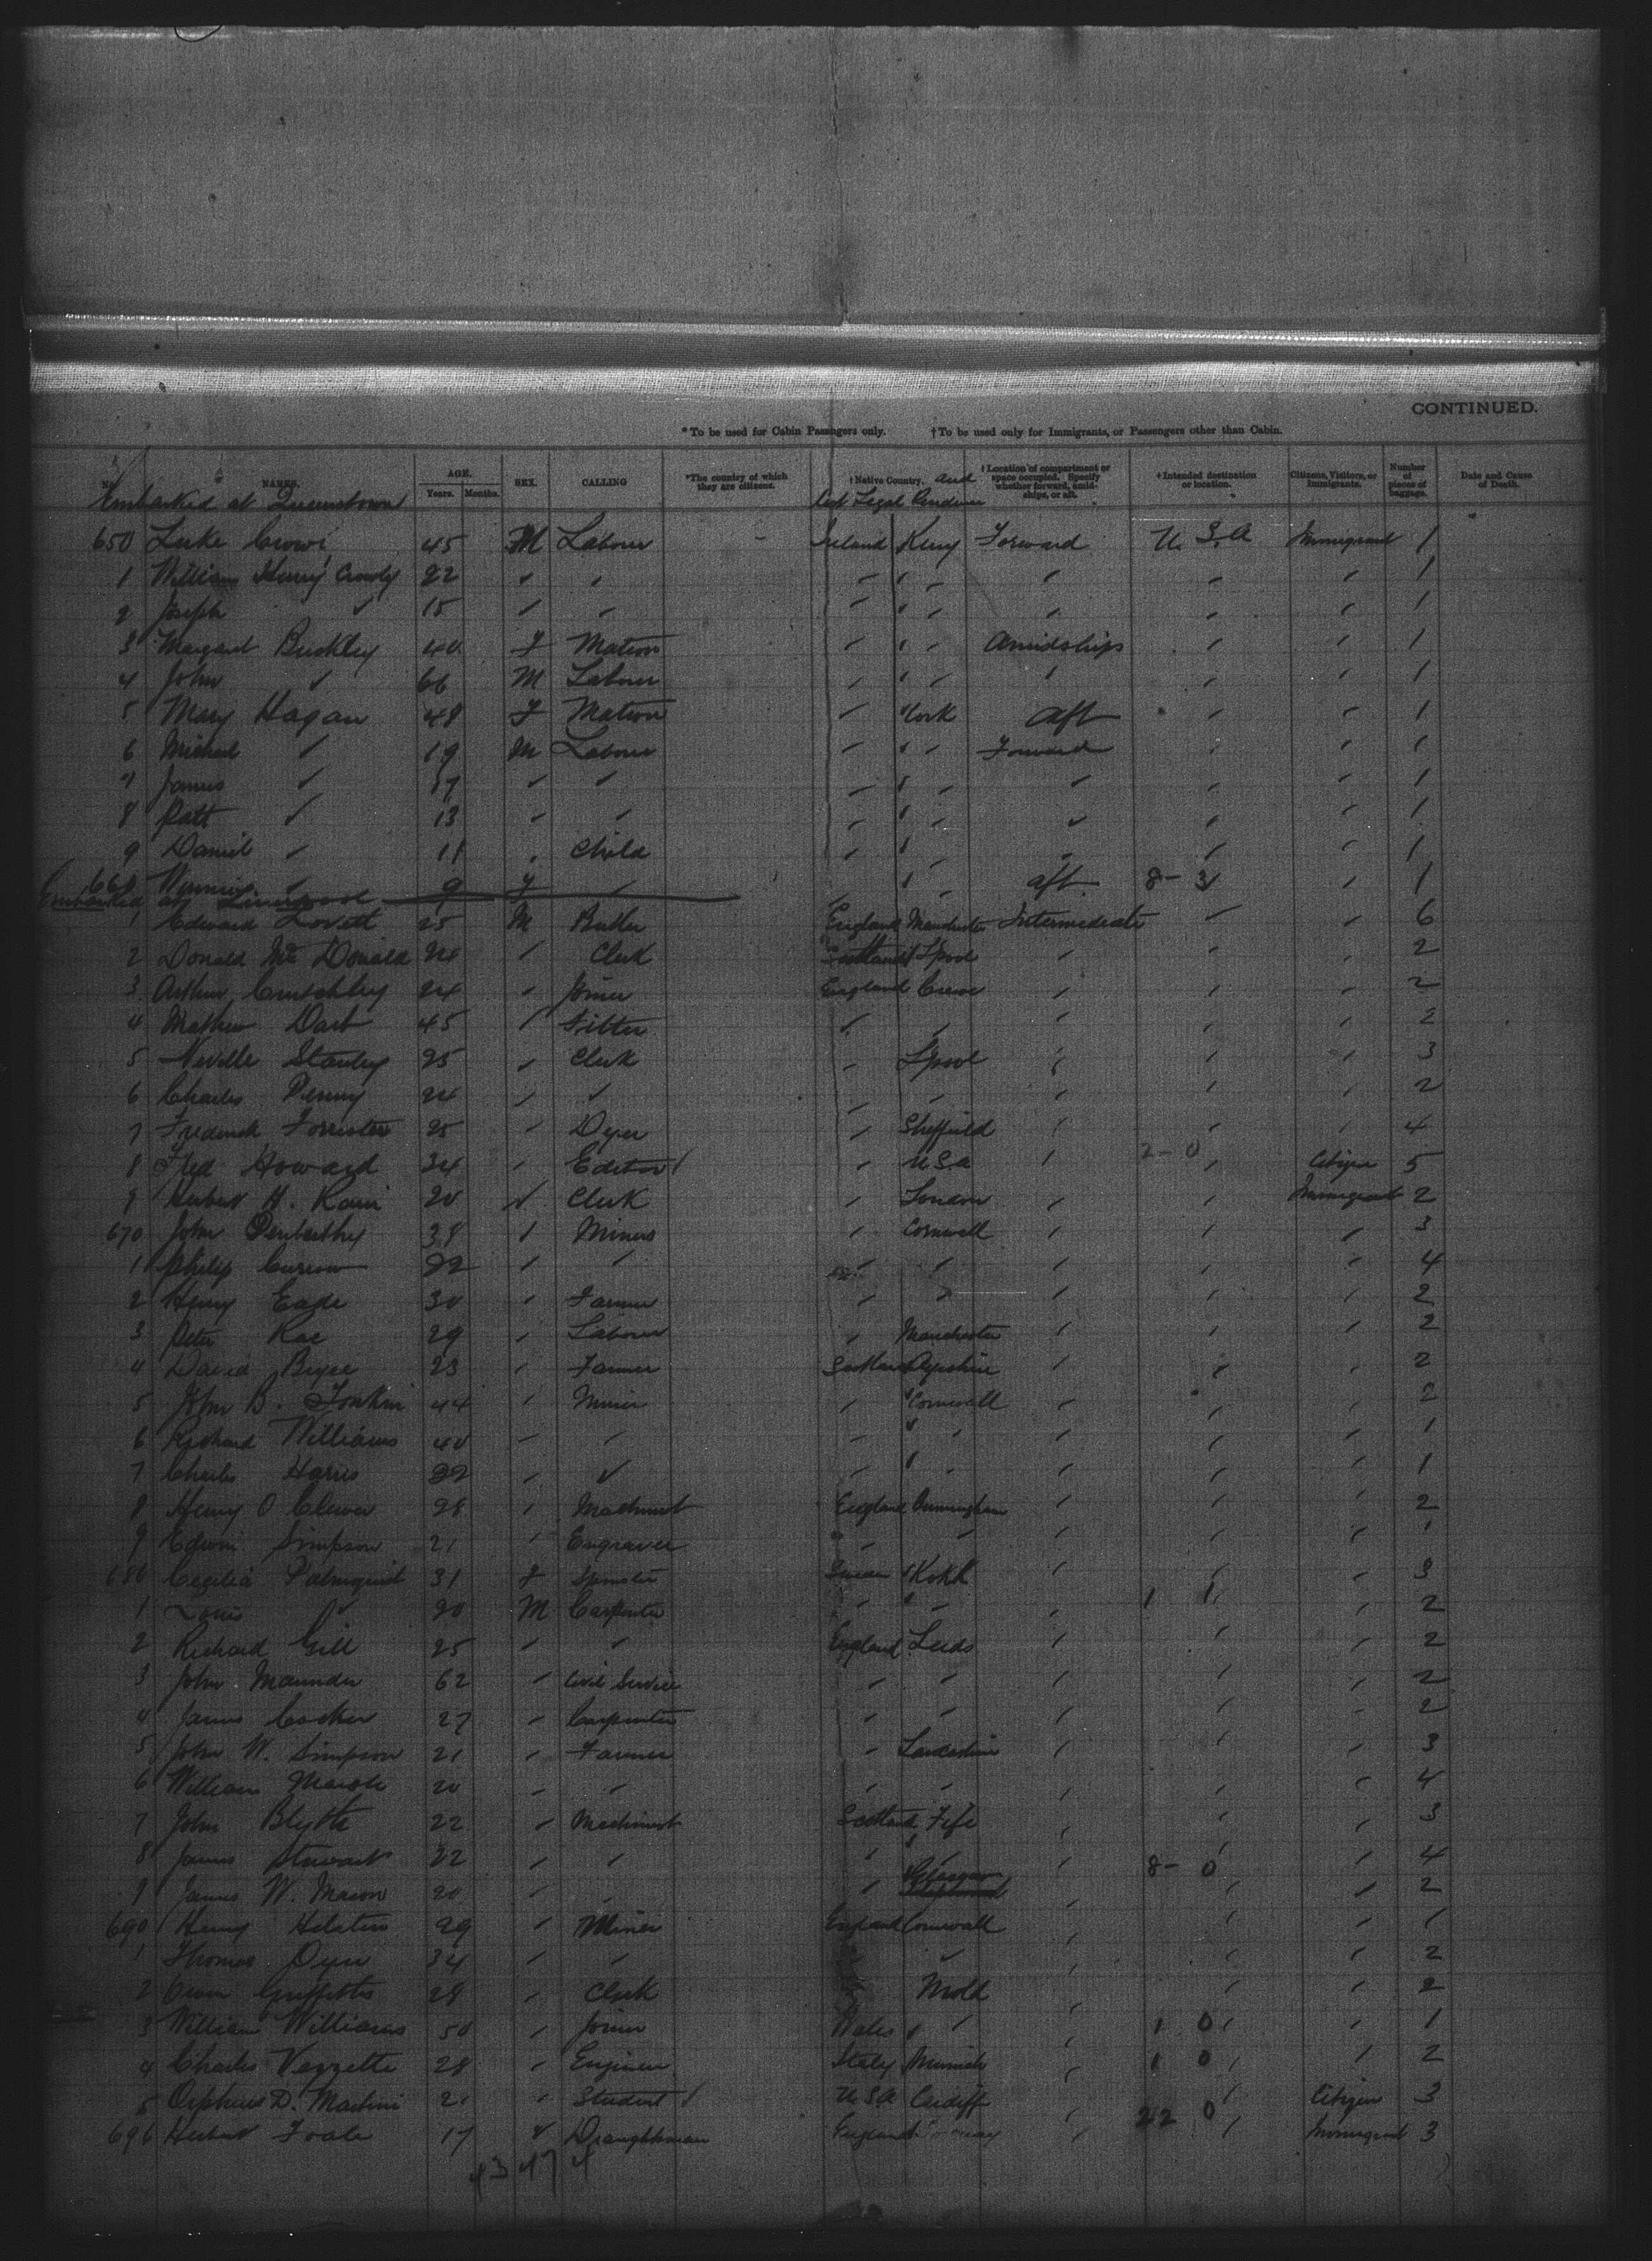 CONTINUED.
*To be used for Cabin Passengers only. †To be used only for Immigrants, or Passengers other than Cabin.
No. NAMES. AGE. Years. Months. SEX. CALLING *The country of which they are citizens. †Native Country, and last Legal Residence †Location of compartment or space occupied. Specify whether forward, amidships, or aft. †Intended destination or location. Citizens, Visitors, or Immigrants. Number of pieces of baggage. Date and Cause of Death.
Embarked at Queenstown
650 Luke 45 M Labour Ireland Kerry Forward U.S.A Immigrant 1
1 William Henry Crowly 22 " " " " " " " 1
2 Joseph " 15 " " " " " " " 1
3 Margaret Buckley 40 F Matron " " Amidships " " 1
4 John " 66 M Labour " " " " " 1
5 Mary Hagan 48 F Matron " Cork aft " " 1
6 Michael " 19 M Labour " " Forward " " 1
7 James " 17 " " " " " " " 1
8 Patt " 13 " " " " " " " 1
9 Daniel " 11 " Child " " " " " 1
660 " 9 F " " " aft 8-3 " " 1
Embarked at Liverpool
1 Edward Lovett 25 M Butler England Manchester Intermediate " " 6
2 Donald Mc Donald 24 " Clerk Scotland L'pool " " " 2
3 Arthur Crutchley 24 " Joiner England Crewe " " " 2
4 Mathew Dart 45 " Fitter " " " " " 2
5 Neville Stanley 25 " Clerk " L'pool " " " 3
6 Charles Penny 24 " " " " " " " 2
7 Frederick Forrester 25 " Dyer " Sheffield " " " 4
8 Fred Howard 34 " Editor " U.S.A " 2-0 " Citizen 5
9 Herbert H. 20 " Clerk " London " " Immigrant 2
670 John Penberthy 38 " Miner " Cornwall " " " 3
1 Philip Curnow 22 " " " " " " " 4
2 Henry Eade 30 " Farmer " " " " " 2
3 Peter Rae 29 " Labour " Manchester " " " 2
4 David Bryce 23 " Farmer Scotland Ayrshire " " " 2
5 John B. Tonkin 44 " Miner " Cornwall " " " 2
6 Richard Williams 40 " " " " " " " 1
7 Charles Harris 22 " " " " " " " 1
8 Henry O Clewer 28 " Machinist England Birmingham " " " 2
9 Edwin Simpson 21 " Engraver " " " " " 1
680 Cecilia Palmquist 31 F Spinster " " " 3
1 Louis " 20 M Carpenter " " " 1 1 " " 2
2 Richard Gill 25 " " England Leeds " " " 2
3 John Maunder 62 " Civil Service " " " " " 2
4 James Cocker 27 " Carpenter " " " " " 2
5 John W. Simpson 21 " Farmer " Lancashire " " " 3
6 William 20 " " " " " " " 4
7 John Blyth 22 " Machinist Scotland Fife " " " 3
8 James Stewart 22 " " " " " 8-0 " " 4
9 James W. Mason 20 " " " Glasgow " " " 2
690 Henry 29 " Miner England Cornwall " " " 1
1 Thomas Dyer 34 " " " " " " " 2
2 Owen Griffiths 28 " Clerk " Mold " " " 2
3 William Williams 50 " Joiner Wales " " 1 0 " " 1
4 Charles Vezzetti 28 " Engineer Italy " 1 0 " " 2
5 Orpheus D. Martini 21 " Student U.S.A Cardiff " " Citizen 3
696 Herbert 17 " Draughtsman England " 22 0 " Immigrant 3
43 47 4